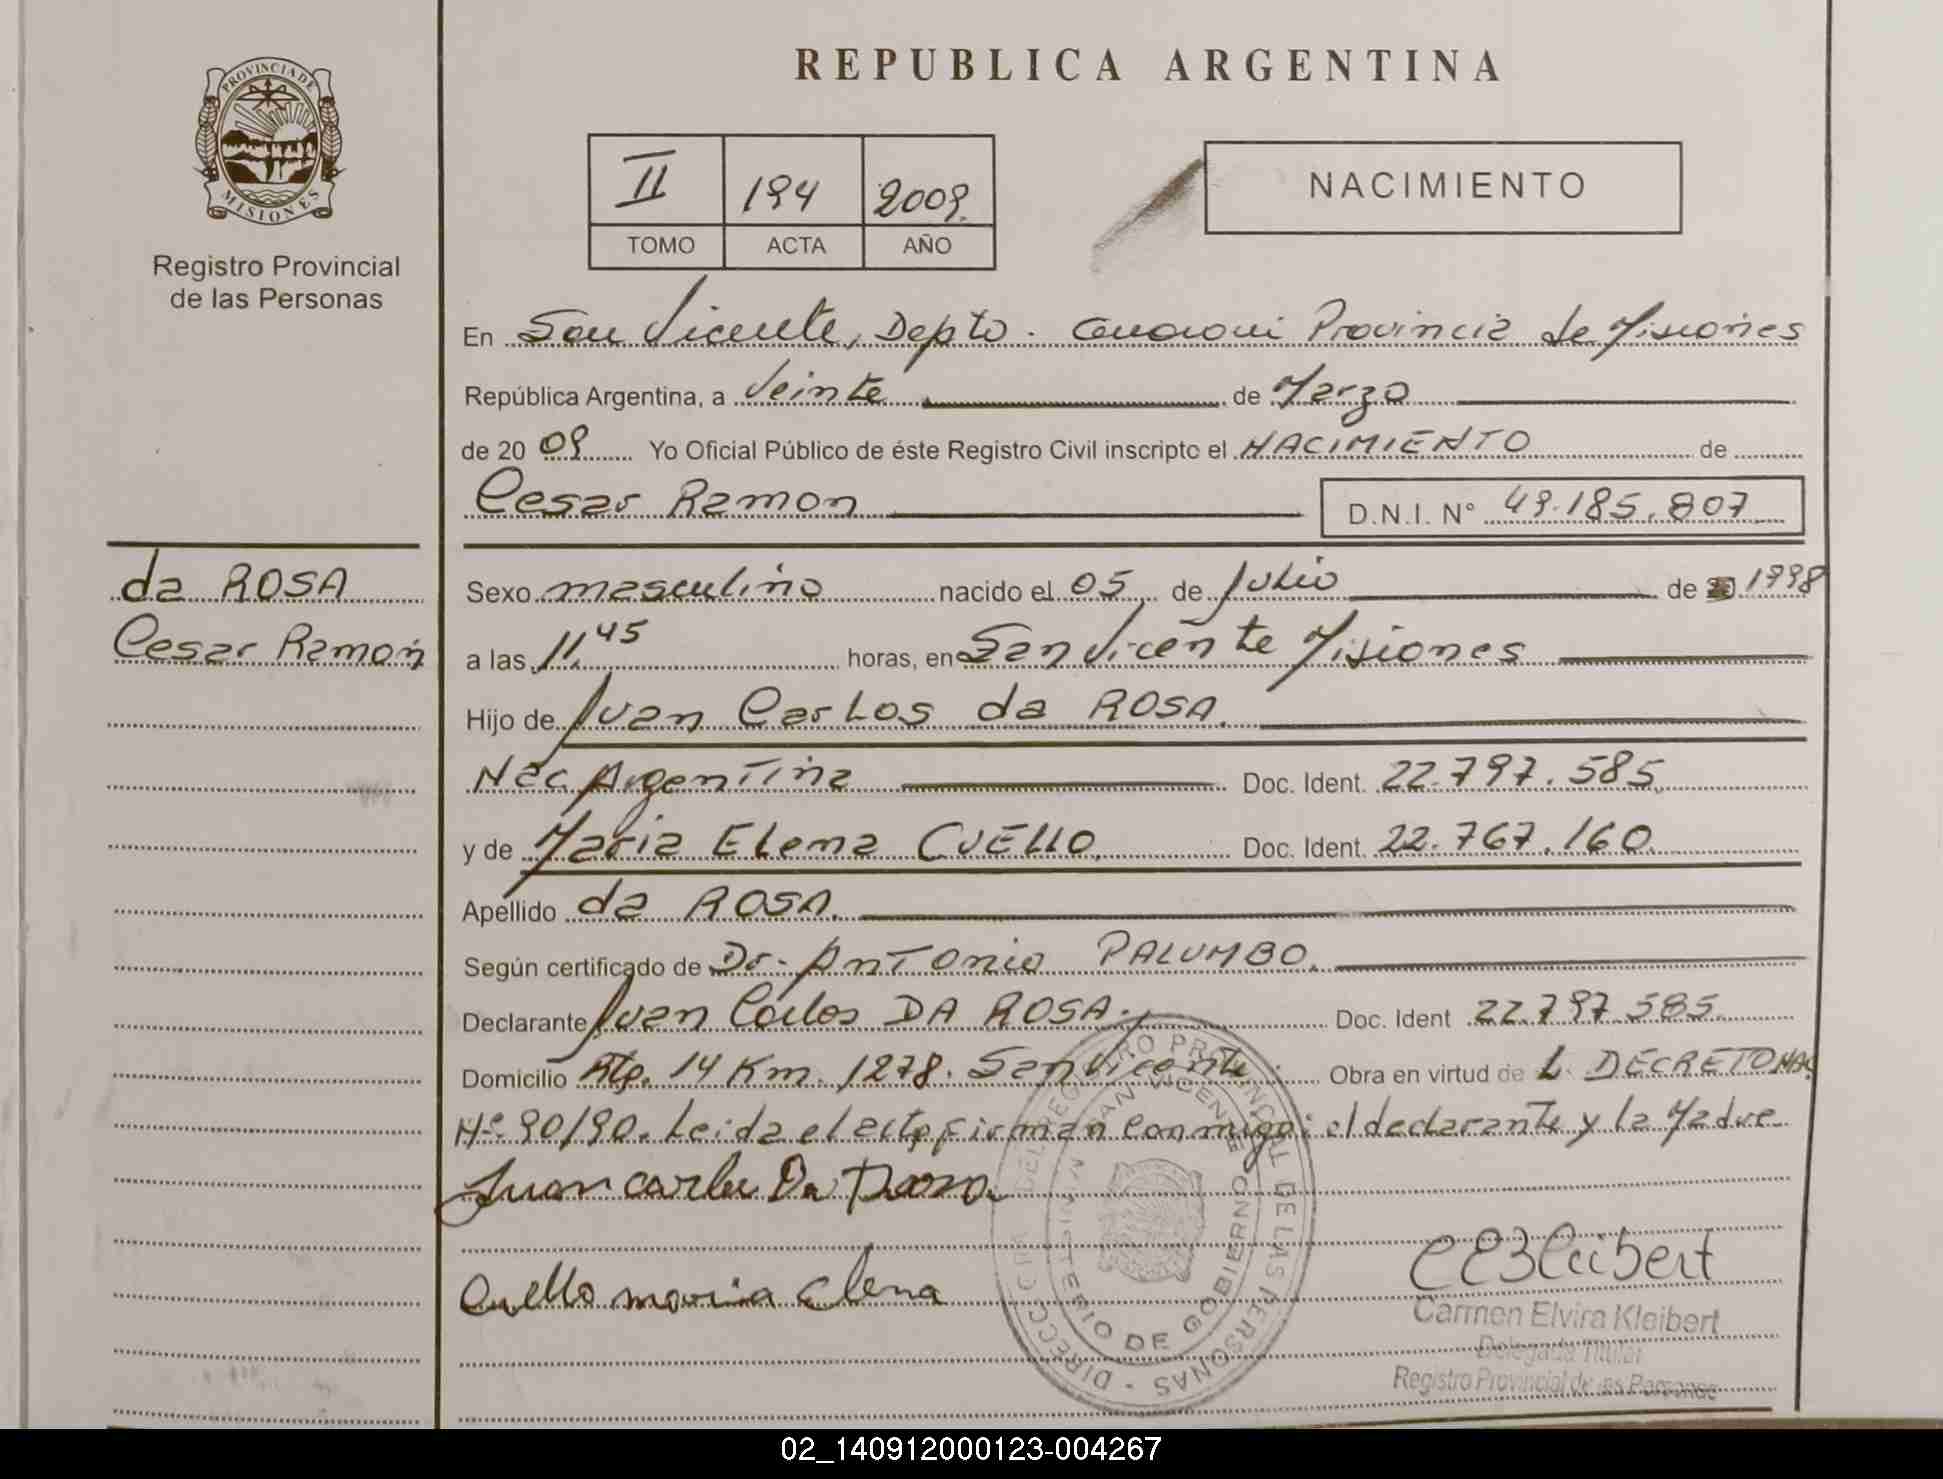 PROVINCIA DE
MISIONES
Registro Provincial
de las Personas
REPUBLICA ARGENTINA
II 194 2009.
TOMO ACTA AÑO
NACIMIENTO
En San Vicente, Depto. Guarani Provincia de Misiones
República Argentina, a Veinte de Marzo
de 20 09 Yo Oficial Público de éste Registro Civil inscripto el NACIMIENTO de
Cesar Ramon D.N.I. N° 49.185.807
da ROSA
Cesar Ramon
Sexo masculino nacido el 05 de Julio de 1998
a las 11.45 horas, en San Vicente Misiones
Hijo de Juan Carlos da ROSA.
Nac Argentina Doc. Ident. 22.797.585
y de Maria Elena CUELLO. Doc. Ident. 22.767.160
Apellido da ROSA.
Según certificado de Dr. Antonio PALUMBO.
Declarante Juan Carlos DA ROSA. Doc. Ident 22.797.585.
Domicilio Rta. 14 Km. 1278. San Vicente Obra en virtud de L DECRETO NAC.
Nº 90/90. Leida el acta firman conmigo: el declarante y la Madre
Juan carlos Da Rosa
Cuello maria elena
DIRECC. GRAL. DEL REGISTRO PROVINCIAL DE LAS PERSONAS -
SAN VICENTE
MINISTERIO DE GOBIERNO
CEKleibert
Carmen Elvira Kleibert
Delegada Titular
Registro Provincial de las Personas
02_140912000123-004267